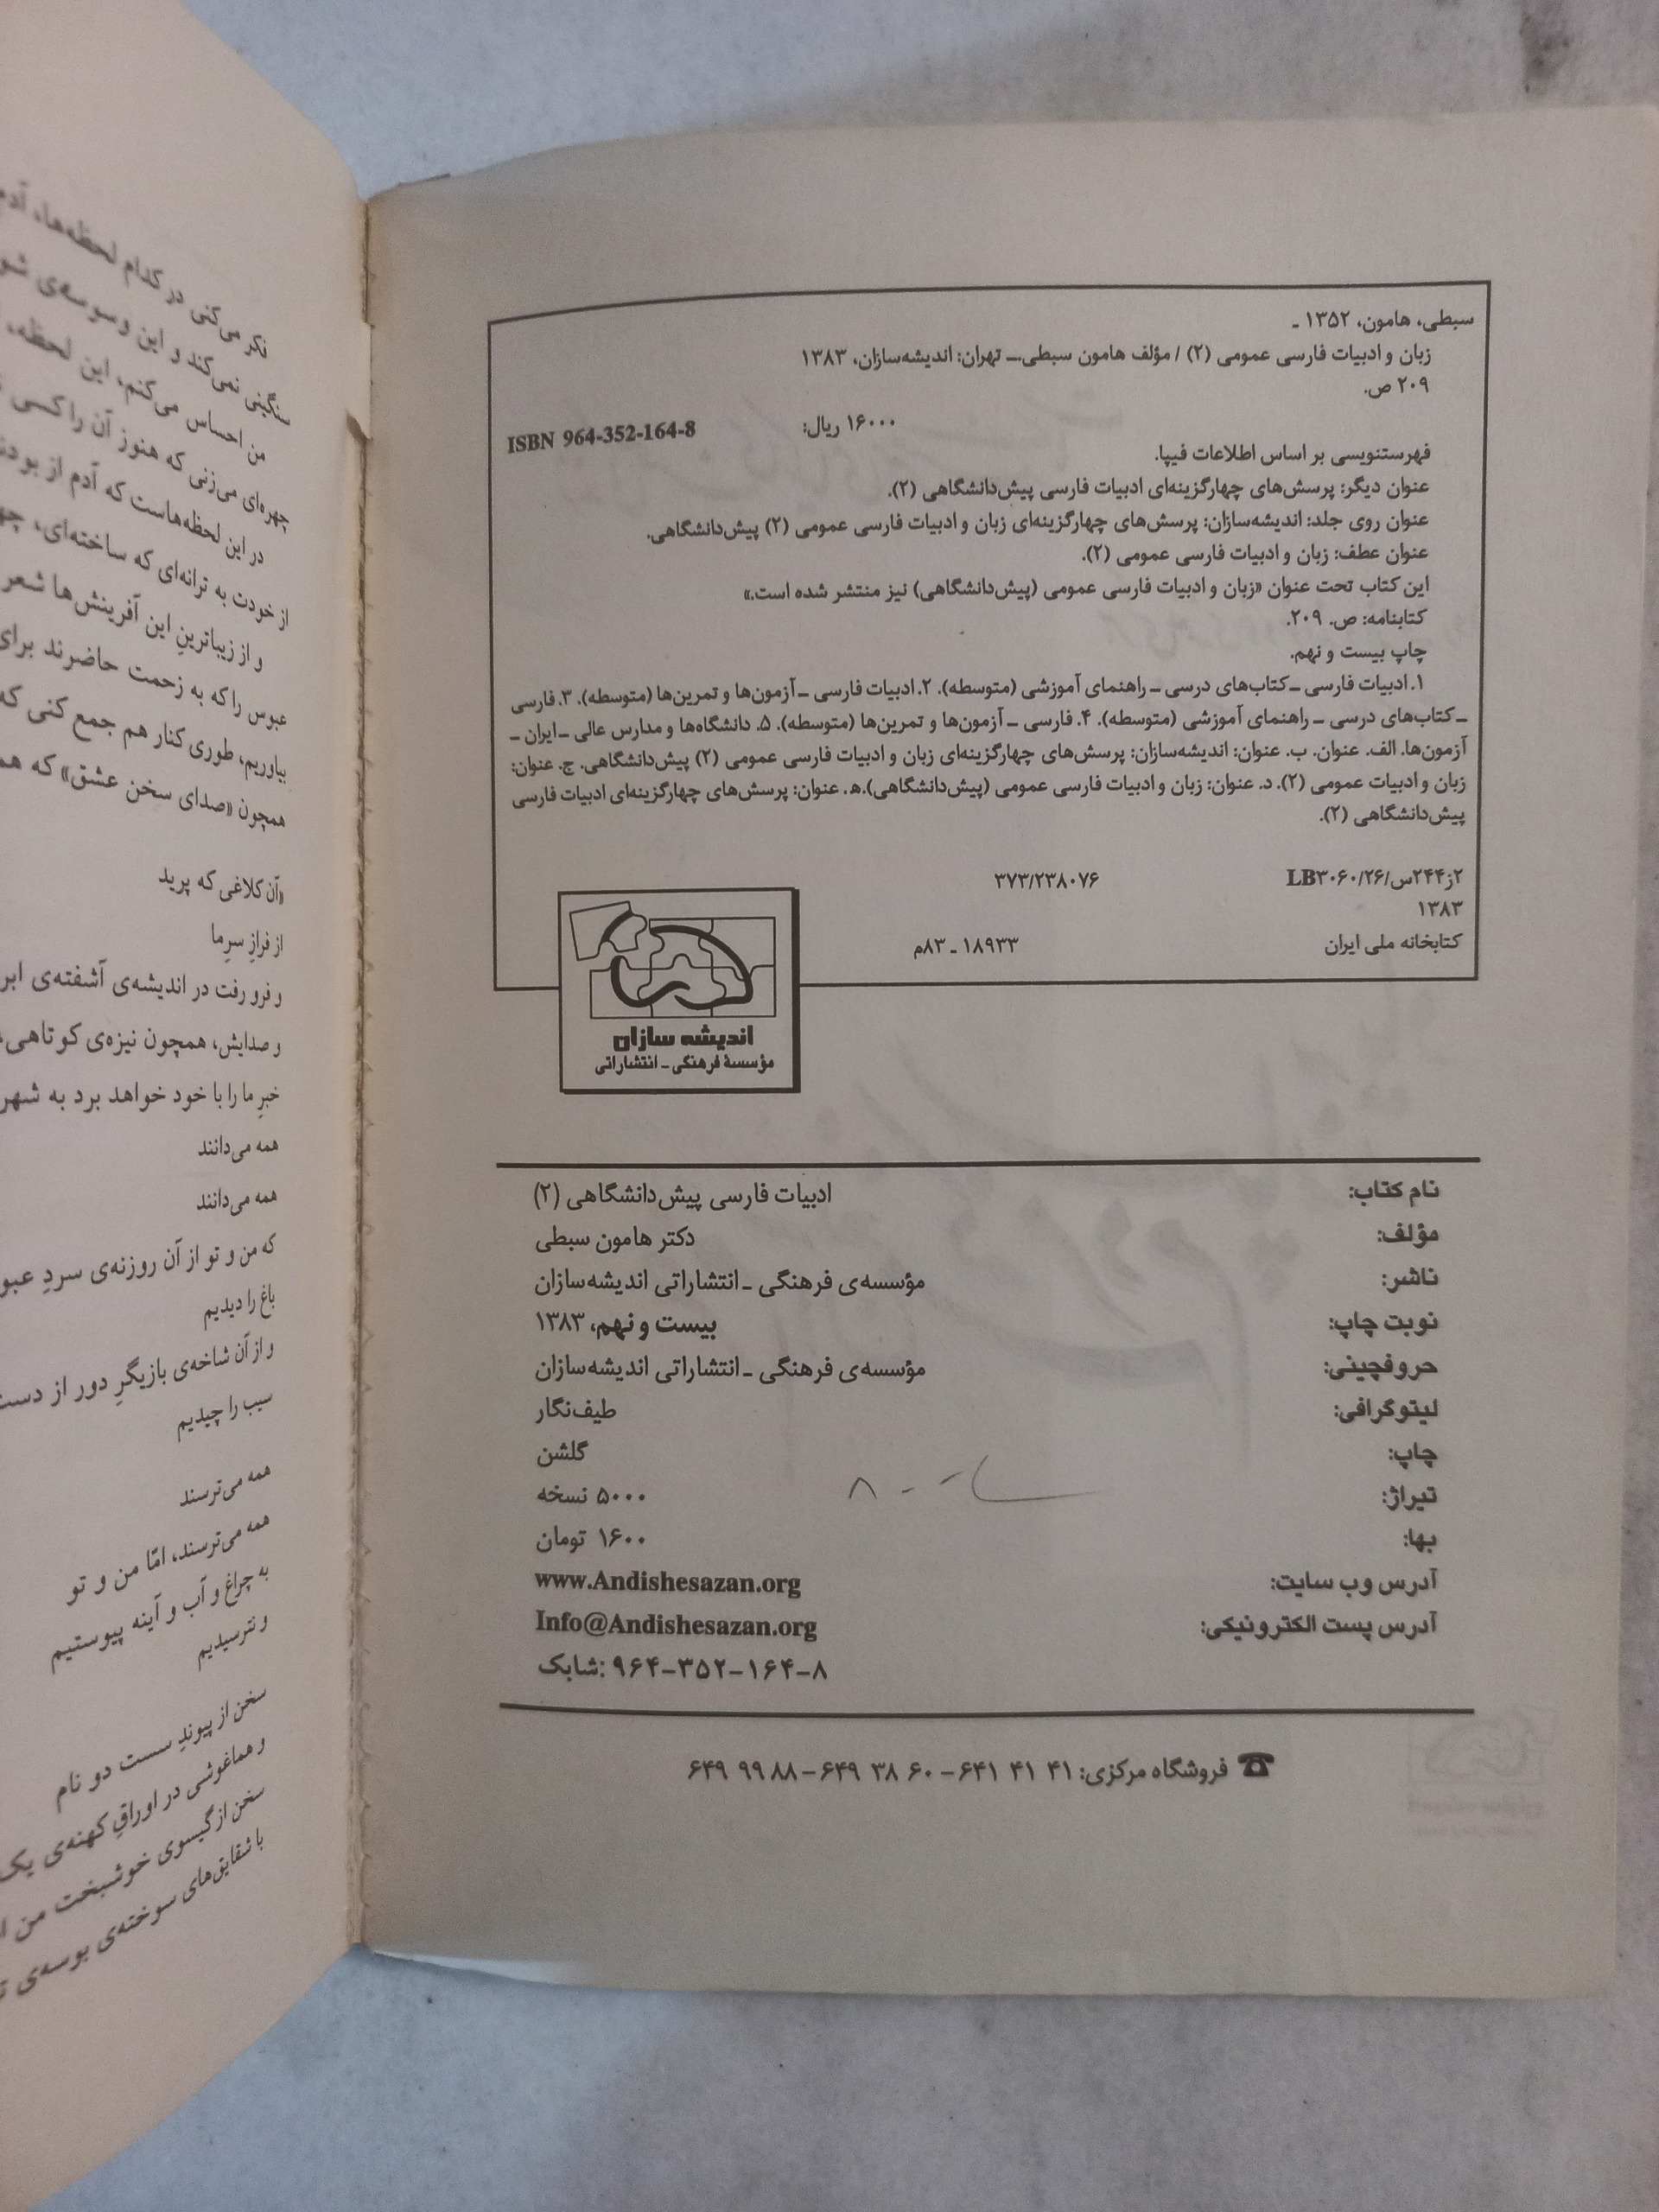 سبطی، هامون، ۱۳۵۲ ـ
زبان و ادبیات فارسی عمومی (۲) / مؤلف هامون سبطی.ـ تهران: اندیشه‌سازان، ۱۳۸۳
۲۰۹ ص.
۱۶۰۰۰ ریال: ISBN 964-352-164-8
فهرستنویسی بر اساس اطلاعات فیپا.
عنوان دیگر: پرسش‌های چهارگزینه‌ای ادبیات فارسی پیش‌دانشگاهی (۲).
عنوان روی جلد: اندیشه‌سازان: پرسش‌های چهارگزینه‌ای زبان و ادبیات فارسی عمومی (۲) پیش‌دانشگاهی.
عنوان عطف: زبان و ادبیات فارسی عمومی (۲).
این کتاب تحت عنوان «زبان و ادبیات فارسی عمومی (پیش‌دانشگاهی) نیز منتشر شده است.»
کتابنامه: ص. ۲۰۹.
چاپ بیست و نهم.
۱. ادبیات فارسی ـ کتاب‌های درسی ـ راهنمای آموزشی (متوسطه). ۲. ادبیات فارسی ـ آزمون‌ها و تمرین‌ها (متوسطه). ۳. فارسی
ـ کتاب‌های درسی ـ راهنمای آموزشی (متوسطه). ۴. فارسی ـ آزمون‌ها و تمرین‌ها (متوسطه). ۵. دانشگاه‌ها و مدارس عالی ـ ایران ـ
آزمون‌ها. الف. عنوان. ب. عنوان: اندیشه‌سازان: پرسش‌های چهارگزینه‌ای زبان و ادبیات فارسی عمومی (۲) پیش‌دانشگاهی. ج. عنوان:
زبان و ادبیات عمومی (۲). د. عنوان: زبان و ادبیات فارسی عمومی (پیش‌دانشگاهی).ه‍. عنوان: پرسش‌های چهارگزینه‌ای ادبیات فارسی
پیش‌دانشگاهی (۲).
۲ز۲۴۴س/LB۳۰۶۰/۲۶ ۳۷۳/۲۳۸۰۷۶
۱۳۸۳
کتابخانه ملی ایران ۱۸۹۳۳ ـ ۸۳م
اندیشه سازان
مؤسسهٔ فرهنگی ـ انتشاراتی
نام کتاب: ادبیات فارسی پیش‌دانشگاهی (۲)
مؤلف: دکتر هامون سبطی
ناشر: مؤسسه‌ی فرهنگی ـ انتشاراتی اندیشه‌سازان
نوبت چاپ: بیست و نهم، ۱۳۸۳
حروفچینی: مؤسسه‌ی فرهنگی ـ انتشاراتی اندیشه‌سازان
لیتوگرافی: طیف‌نگار
چاپ: گلشن
تیراژ: ۵۰۰۰ نسخه
بها: ۱۶۰۰ تومان
آدرس وب سایت: www.Andishesazan.org
آدرس پست الکترونیکی: Info@Andishesazan.org
شابک: ۹۶۴-۳۵۲-۱۶۴-۸
فروشگاه مرکزی: ۴۱ ۴۱ ۶۴۱ - ۶۰ ۳۸ ۶۴۹ - ۸۸ ۹۹ ۶۴۹
فکر می‌کنی در کدام لحظه‌ها، آدم
سنگینی نمی‌کند و این وسوسه‌ی
من احساس می‌کنم، این لحظه،
چهره‌ای می‌زنی که هنوز آن را کسی
در این لحظه‌هاست که آدم از
از خودت به ترانه‌ای که ساخته‌ای،
و از زیباترینِ این آفرینش‌ها شعر
عبوس را که به زحمت حاضرند برای
بیاوریم، طوری کنار هم جمع کنی که
همچون «صدای سخن عشق» که
«آن کلاغی که پرید
از فرازِ سرِما
و فرو رفت در اندیشه‌ی آشفته‌ی ابر
و صدایش، همچون نیزه‌ی کوتاهی،
خبرِ ما را با خود خواهد برد به شهر
همه می‌دانند
همه می‌دانند
که من و تو از آن روزنه‌ی سردِ
باغ را دیدیم
و از آن شاخه‌ی بازیگرِ دور از دست
سیب را چیدیم
همه می‌ترسند
همه می‌ترسند، امّا من و تو
به چراغ و آب و آینه پیوستیم
و نترسیدیم
سخن از پیوندِ سست دو نام
و هماغوشی در اوراقِ کهنه‌ی یک
سخن از گیسوی خوشبخت من
با شقایق‌های سوخته‌ی بوسه‌ی